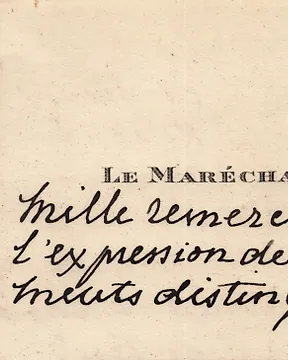 LE MARÉCHA
Mille remerc
l'expression de
ments distin